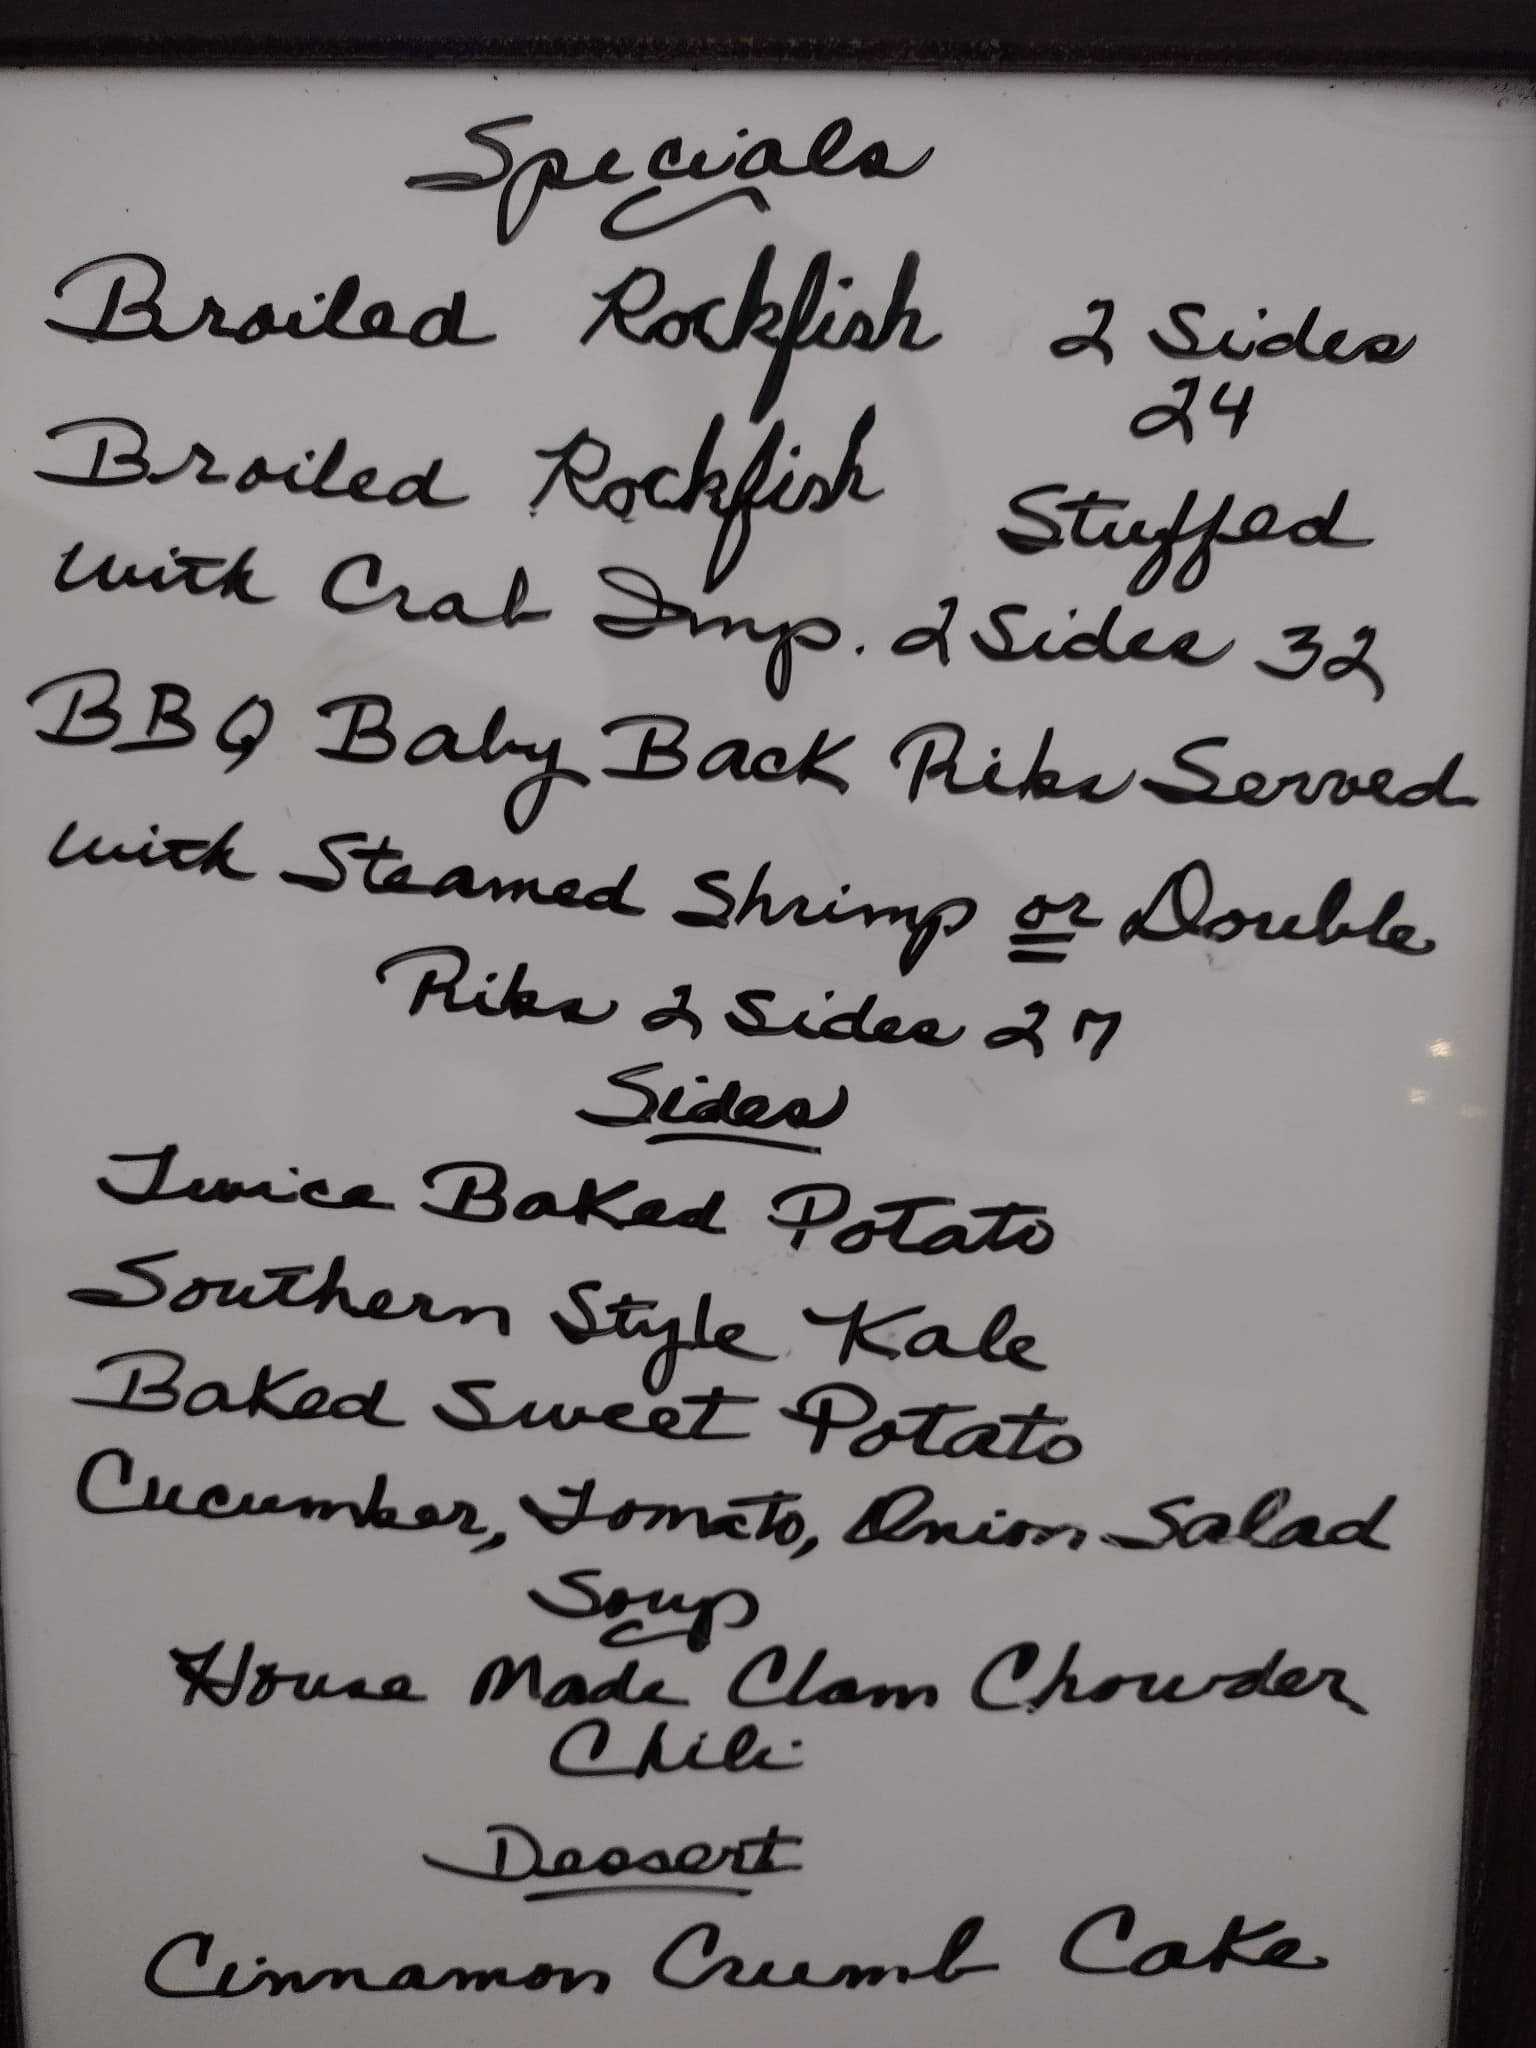 Specials
Broiled Rockfish 2 Sides
24
Broiled Rockfish Stuffed
with Crab Imp. 2 Sides 32
BBQ Baby Back Ribs Served
with Steamed Shrimp or Double
Ribs 2 Sides 27
Sides
Twice Baked Potato
Southern Style Kale
Baked Sweet Potato
Cucumber, Tomato, Onion Salad
Soup
House Made Clam Chowder
Chili
Dessert
Cinnamon Crumb Cake